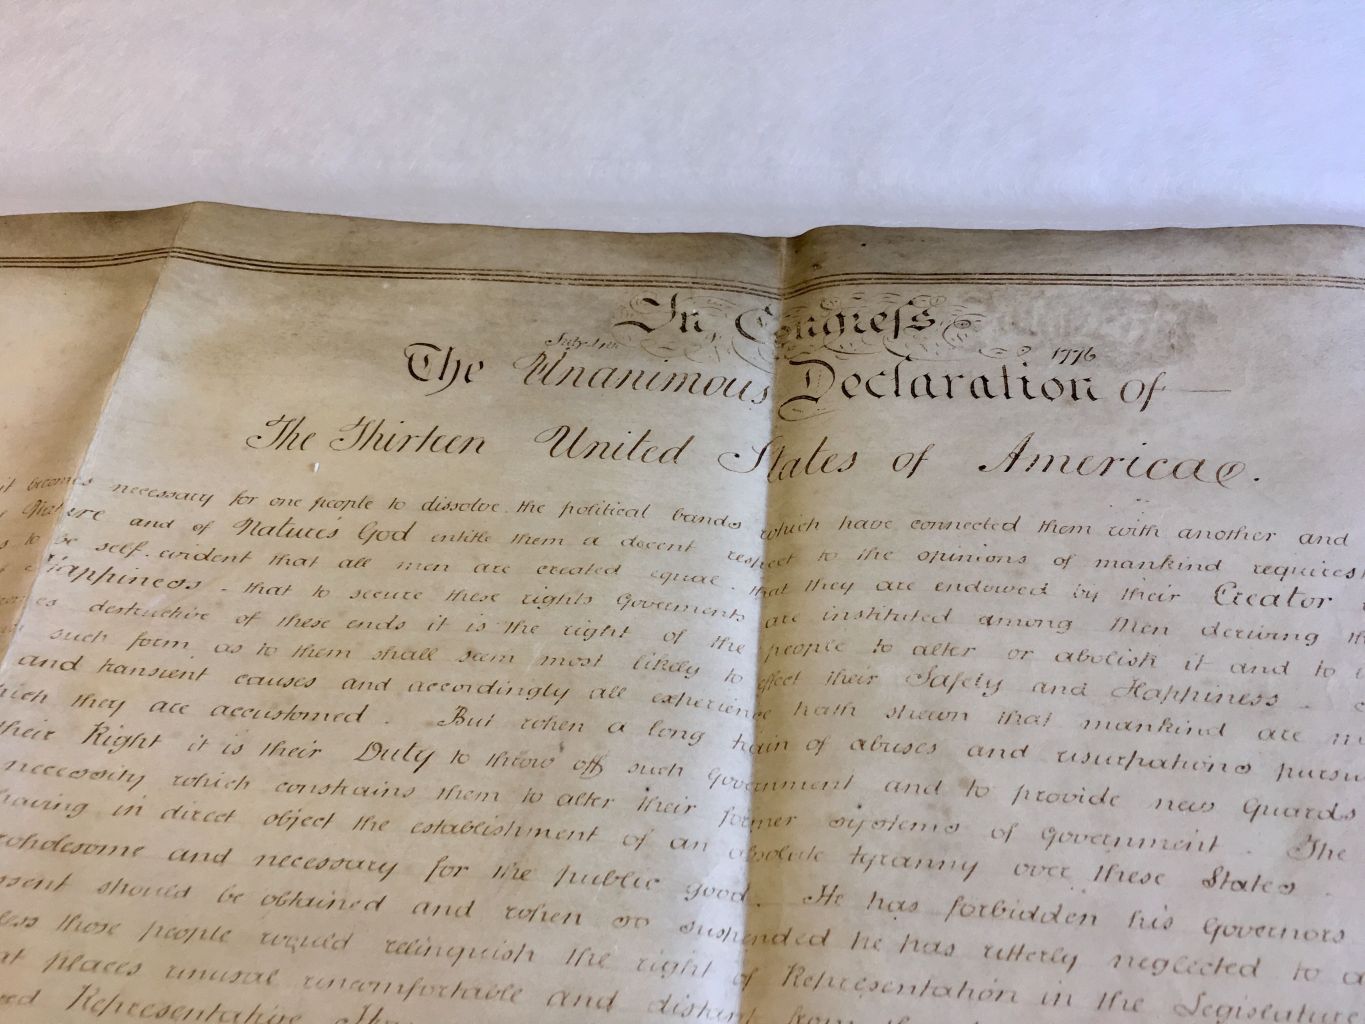 In Congress
July 4th 1776
The Unanimous Declaration of
The Thirteen United States of America.
it becomes necessary for one people to dissolve the political bands which have connected them with another and
Nature and of Nature's God entitle them a decent respect to the opinions of mankind requires
to be self-evident that all men are created equal that they are endowed by their Creator
Happiness - that to secure these rights Goverments are instituted among Men deriving
destructive of these ends it is the right of the people to alter or abolish it and to
such form, as to them shall seem most likely to effect their Safety and Happiness
and transient causes and accordingly all experience hath shewn that mankind are
which they are accustomed. But when a long train of abuses and usurpations
their Right it is their Duty to throw off such Government and to provide new Guards
necessity which constrains them to alter their former systems of Government. The
having in direct object the establishment of an absolute tyranny over these States.
wholesome and necessary for the public good. He has forbidden his Governors
should be obtained and when so suspended he has utterly neglected to
those people would relinquish the right of Representation in the Legislature
at places unusual uncomfortable and distant from
Representative